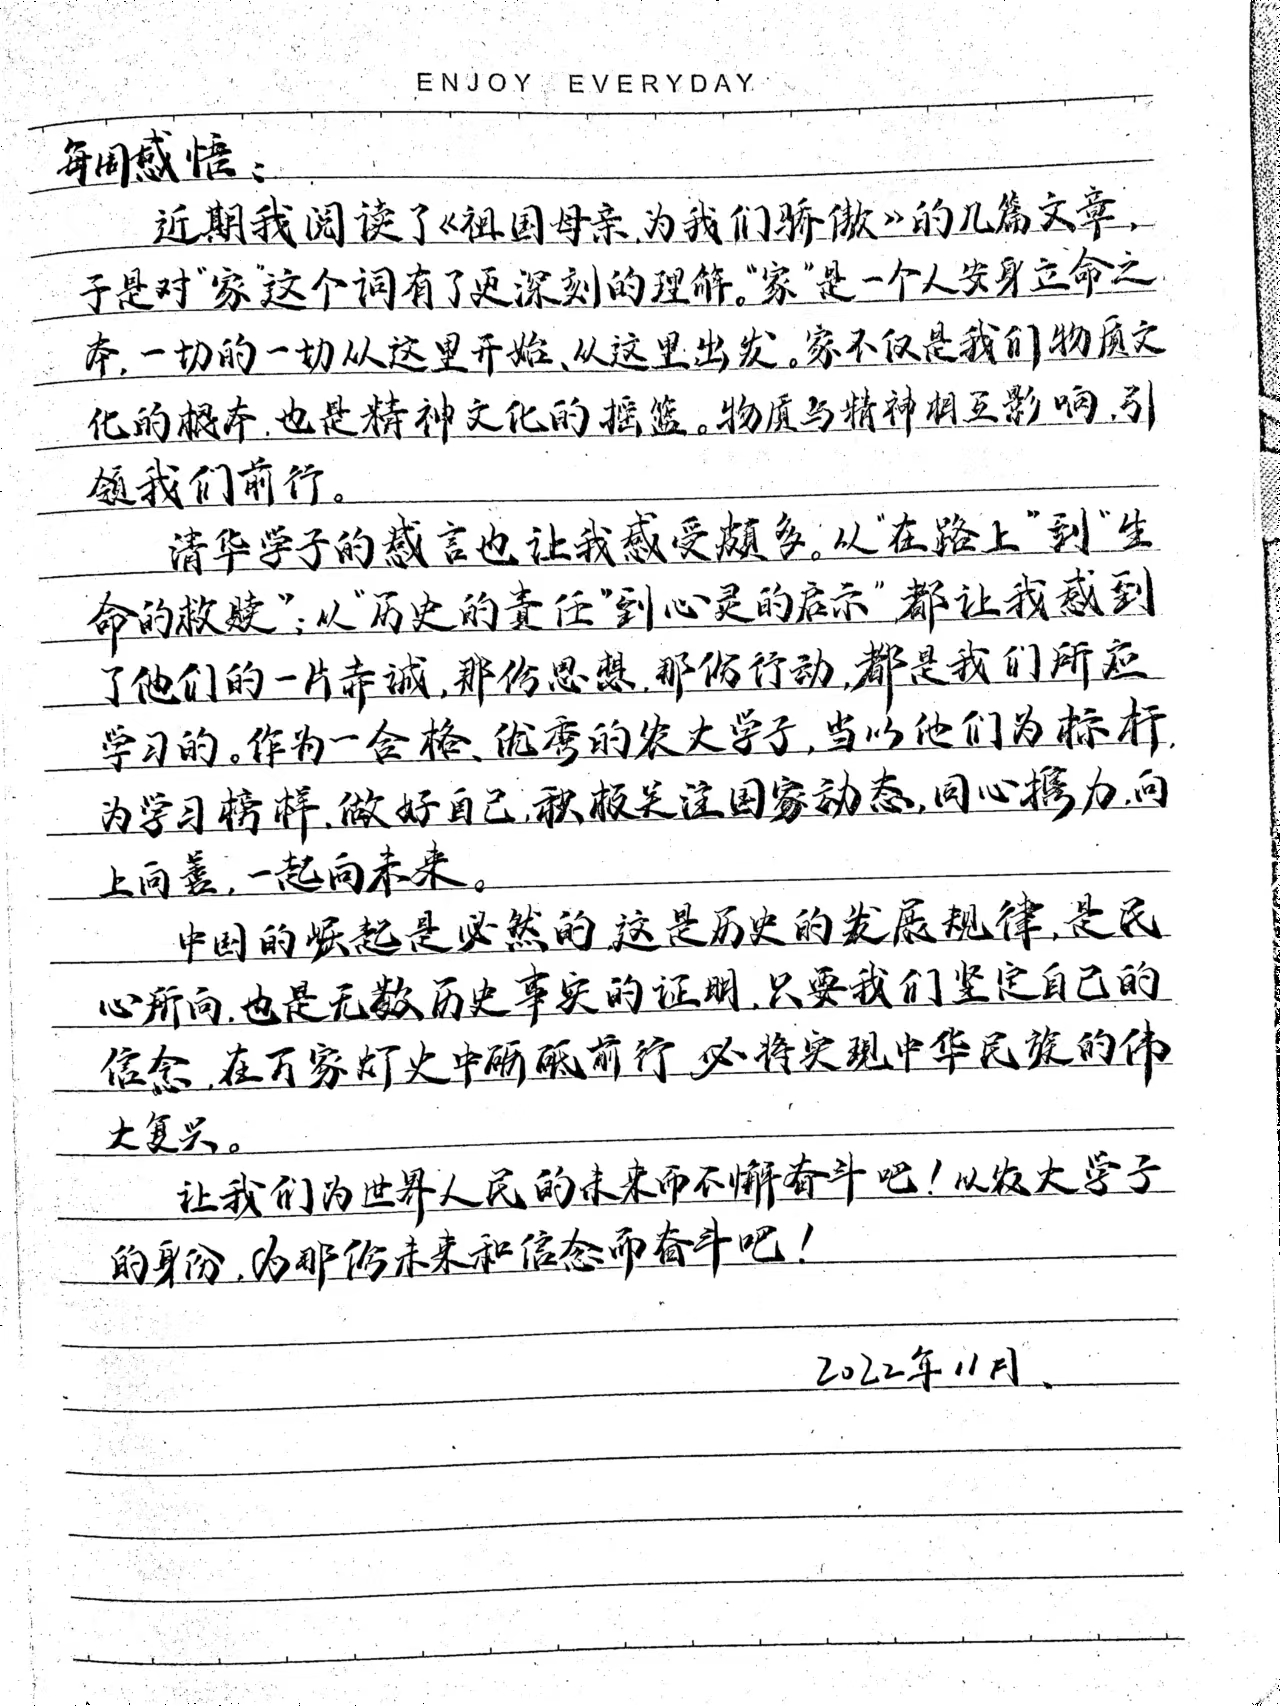 ENJOY EVERYDAY
每周感悟：
近期我阅读了《祖国母亲，为我们骄傲》的几篇文章，
于是对“家”这个词有了更深刻的理解。“家”是一个人安身立命之
本，一切的一切从这里开始、从这里出发。家不仅是我们物质文
化的根本，也是精神文化的摇篮。物质与精神相互影响，引
领我们前行。
清华学子的感言也让我感受颇多。从“在路上”到“生
命的救赎”；从“历史的責任”到心灵的启示”，都让我感到
了他们的一片赤诚，那份思想，那份行动，都是我们所应
学习的。作为一合格、优秀的农大学子，当以他们为标杆，
为学习榜样，做好自己，积极关注国家动态，同心携力，向
上向善，一起向未来。
中国的崛起是必然的，这是历史的发展规律，是民
心所向，也是无数历史事实的证明，只要我们坚定自己的
信念，在万家灯火中砺砥前行，必将实现中华民族的伟
大复兴。
让我们为世界人民的未来而不懈奋斗吧！以农大学子
的身份，为那份未来和信念而奋斗吧！
2022年11月、